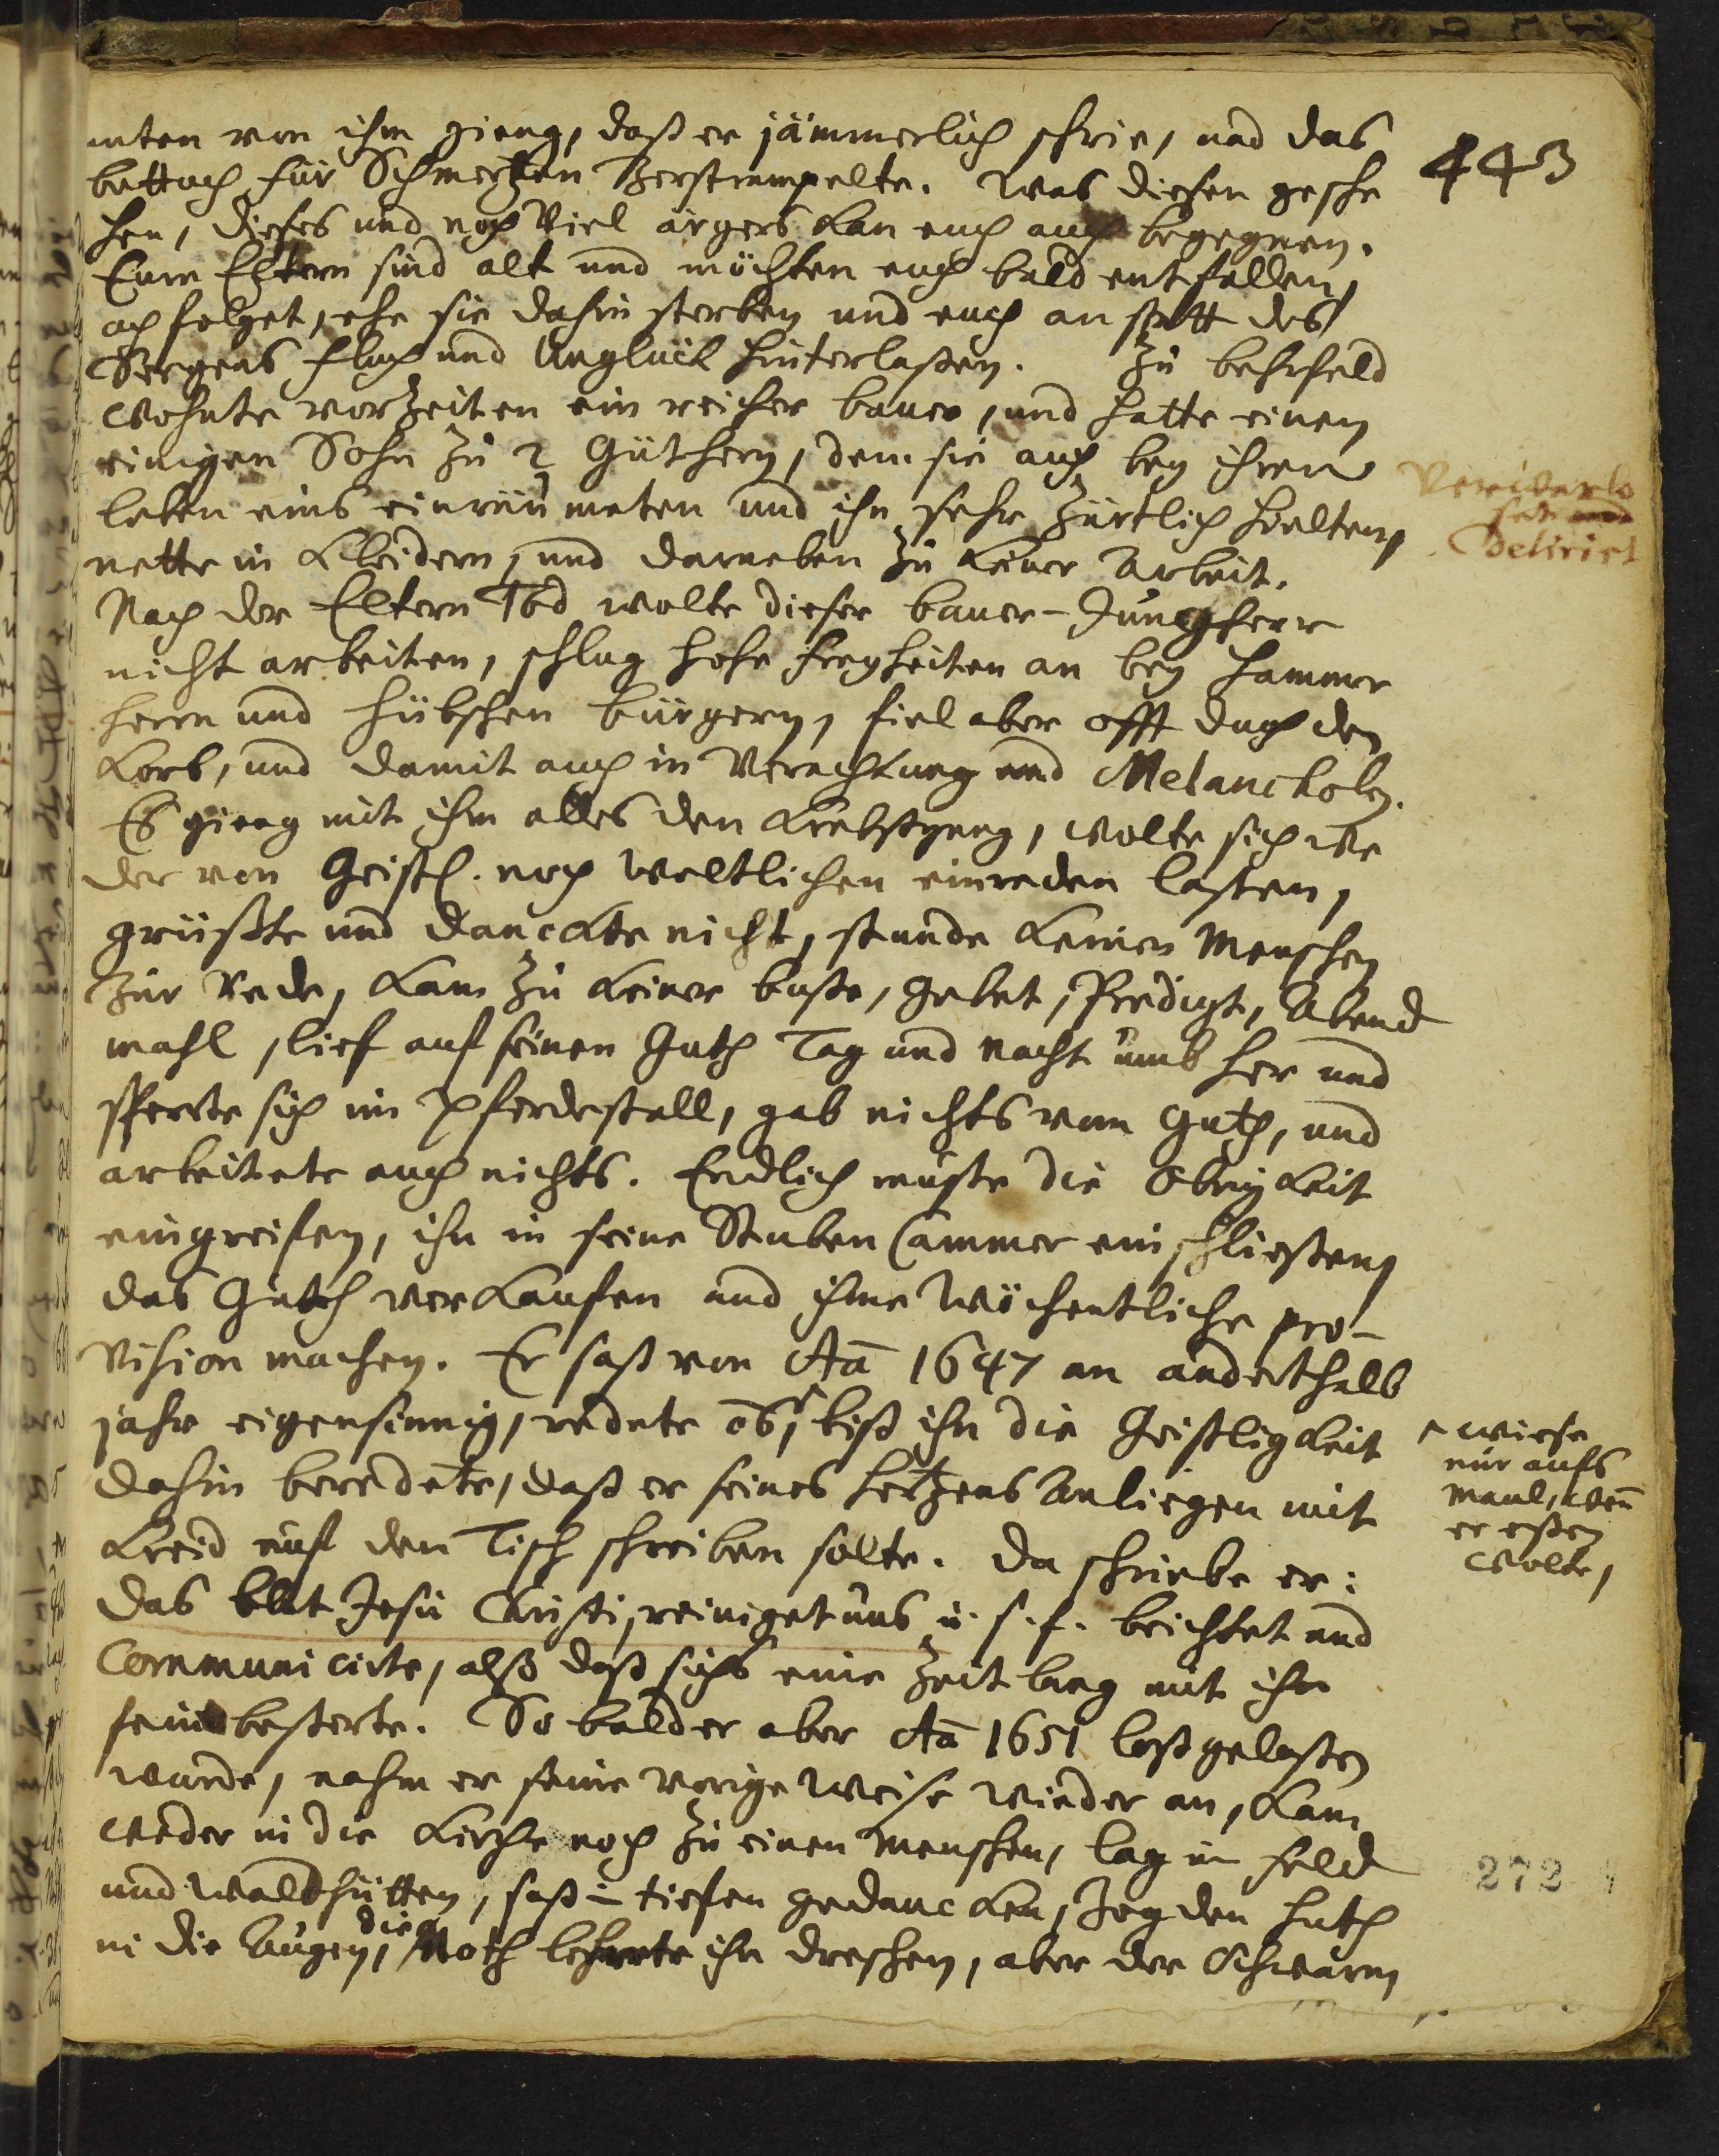 443
unten von ihm gieng, daß er jämmerlich schrie, und das
bettuch für Schmertzen Zerstrampelte. Was diesen gesche
hen, dieses und noch Viel ärgers kan euch auch begegnen.
Eure Eltern sind alt und möchten euch bald entfallen,
ach folget, ehe sie dahin sterben und euch an statt des
Seegens fluch und Unglück hinterlaßen. Zu
wohnte vor Zeiten ein reicher bauer, und hatte einen
einigen Sohn zu 2 Güthern, dem sie auch bey ihren
leben eins einräumeten und ihn sehr Zärtlich hielten,
nette in Kleidern, und darneben zu keiner Arbeit.
Nach der Eltern Tod wolte dieser bauer-Junckherr
nicht arbeiten, schlug hohe freyheiten an bey Hammer
herrn und hübschen bürgern, fiel aber offt durch den
Korb, und damit auch in Verachtung und Melancholey.
Es gieng mit ihm alles den Krebsgang, wolte sich we
der von Geistl. noch Weltlichen einreden laßen,
grüßte und danckte nicht, stunde keinen Menschen
Zur Rede, kam zu keiner buße, gebet, Predigt, Abend
mahl, lief auf seinen Guth Tag und Nacht umb her und
sperrte sich im Pferdestall, gab nichts vom Guth, und
arbeitete auch nichts. Endlich muste die Obrigkeit
eingreifen, ihn in seine Stuben Cammer einschließen,
das Guth verkaufen und ihme Wöchentliche pro-
vision machen. Er saß von Aō 1647 an anderthalb
jahr eigensinnig, redete biß ihn die Geistligkeit
dahin beredete, daß er seines hertzens Anliegen mit
Kreid auf den Tisch schreiben solte. Da schriebe er:
Das blut Jesu Christi, reiniget uns u. s. f. beichtet und
Communicirte, alß daß sichs eine Zeit lang mit ihm
fein beßerte. So bald er aber Aō 1651 loßgelaßen
wurde, nahm er seine vorige Weise wieder an, kam
weder in die Kirche noch zu einen Menschen, lag in feld
und waldhütten, saß in tiefen gedancken, Zog den huth
in die Augen, die Noth lehrete ihn dreschen, aber der Schwarm
Delirirt
wiese
nur aufs
Maul, wen̄
er eßen
wolte,
272